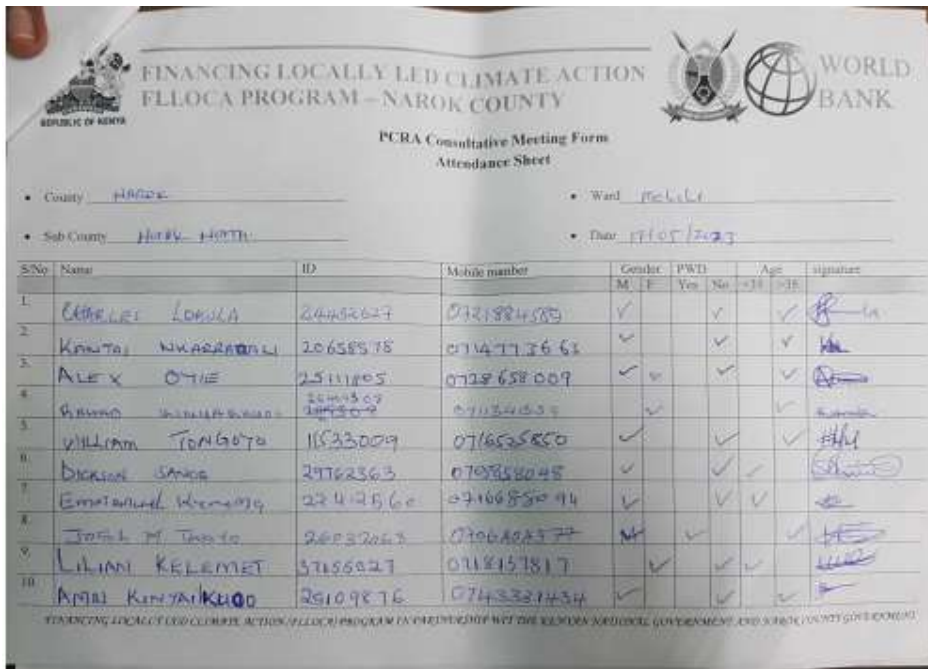 REPUBLIC OF KENYA
FINANCING LOCALLY LED CLIMATE ACTION
FLLOCA PROGRAM – NAROK COUNTY
WORLD
BANK
PCRA Consultative Meeting Form
Attendance Sheet
• County NAROK • Ward Melili
• Sub County NAROK NORTH • Date 17/05/2023
S/No Name ID Mobile number Gender PWD Age signature
M F Yes No <35 >35
1. CHARLES 24452627 0721884589
2. KANTAI 20658578 0714773663
3. ALEX OTIE 25111805 0728658009
4.
5. WILLIAM TONGOYO 11533009 0716525850
6. DICKSON SANOE 29762363 0705858048
7. Emmanuel 0716685094
8. 26032063
9. LILIAN KELEMET 37156027 0718157817
10. 25109876 0743331434
FINANCING LOCALLY LED CLIMATE ACTION (FLLOCA) PROGRAM IN PARTNERSHIP WIT THE KENYAN NATIONAL GOVERNMENT AND NAROK COUNTY GOVERNMENT